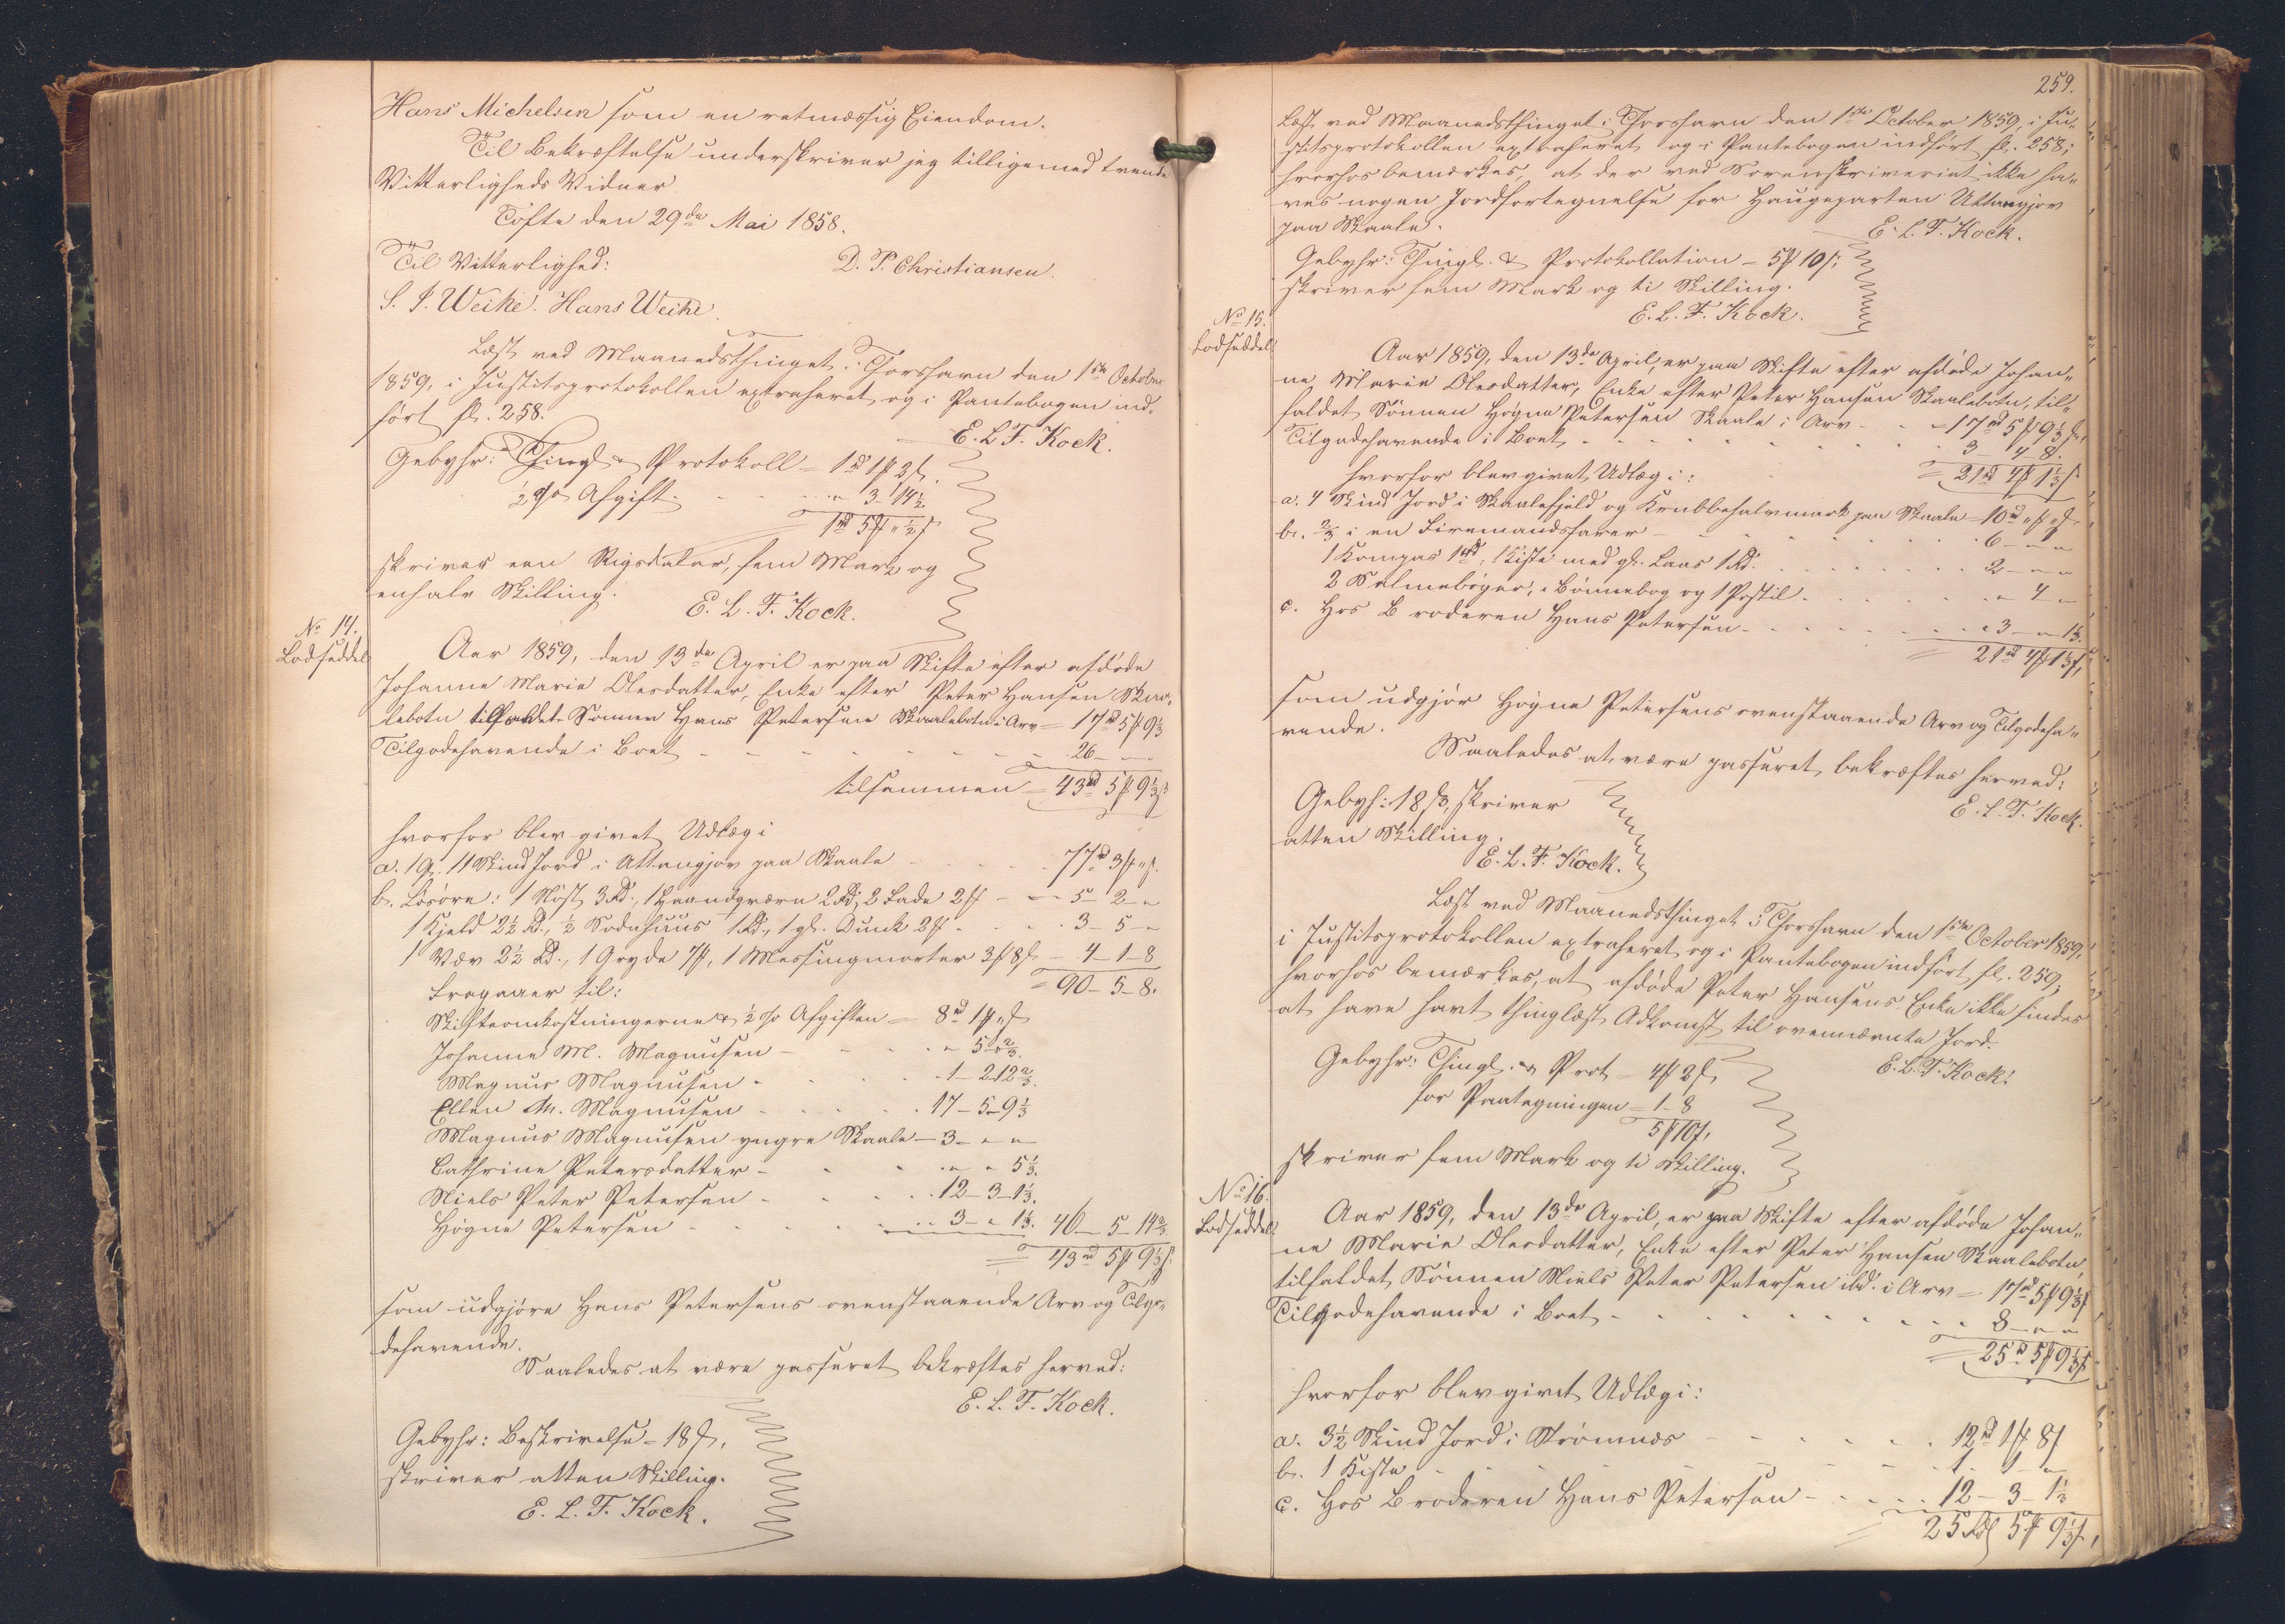 Hans Michelsen som en retmæssig Eiendom.
Til Bekræftelse underskriver jeg tilligemed trende
Vitterligheds Vidner.
Tofte den 29de Mai 1858.
Til Vitterlighed:
D. P. Christiansen.
S. J. Weihe. Hans Weihe.
Læst ved Maanedsthinget i Thorshavn den 1ste October
1859, i Justitsprotokollen extraheret og i Pantebogen ind-
ført fl. 258.
E. L. F. Kock.
Gebyhr: Thingl. & Protokoll = 1rd 1ꝑ 2ſ.
½ % Afgift. - - - " 3 - 14½
1rd 5ꝑ " ½ ſ
skriver een Rigsdaler, fem Mark og
enhalv Skilling.
E. L. F. Kock.
No 14.
Lodseddel
Aar 1859, den 13de April er paa Skifte efter afdøde
Johanne Marie Olesdatter, Enke efter Peter Hansen Skaa-
lebotn tilfaldet Sønnen Hans Petersen Skaalebotn i Arv = 17rd 5ꝑ 9⅓
Tilgodehavende i Boet - - - - 26 - " - "
tilsammen = 43rd 5ꝑ 9⅓ſ
hvorfor blev givet Udlæg i
a. 1 G. 11 Skind Jord i Uttangjov paa Skaale - - - 77rd 3ꝑ " ſ.
b. Løsøre: 1 Nøst 3 Rd., 1 Haandqværn 2 Rd, 2 Lade 2ꝑ - - 5 - 2 - "
1 Kjeld 2½ Rd., ½ Sodnhuus 1 Rd., 1 gl. Dunk 2ꝑ - - - 3 - 5 - "
1 Væv 2½ Rd., 1 Gryde 7ꝑ, 1 Messingmorter 3ꝑ 8ſ - 4 - 1 - 8
= 90 - 5 - 8.
Fragaaer til:
Skifteomkostningerne & ½ % Afgiften = 8rd 1ꝑ " ſ
Johanne M. Magnusen - - - " 5 - 2⅔.
Magnus Magnusen - - - 1 - 2 12⅔.
Ellen M. Magnusen - - - 17 - 5 - 9⅓
Magnus Magnusen yngre Skaale - 3 - " - "
Cathrine Petersdatter - - - " - " 5⅓.
Niels Peter Petersen - - - 12 - 3 - 1⅓.
Høgne Petersen - - - 3 - " 1⅓. 46 - 5 - 14⅔
= 43rd 5ꝑ 9⅓ſ
som udgjøre Hans Petersens ovenstaaende Arv og Tilgo-
dehavende.
Saaledes at være passeret bekræftes herved:
E. L. F. Kock.
Gebyhr: Beskrivelse - 18 ſ.
skriver atten Skilling.
E. L. F. Kock.
259.
Læst ved Maanedsthinget i Thorshavn den 1ste October 1859, i Ju-
stitsprotokollen extraheret og i Pantebogen indført fl. 258;
hvorhos bemærkes, at der ved Sorenskriveriet ikke ha-
ves nogen Jordfortegnelse for Haugeparten Uttangjov
paa Skaale.
E. L. F. Kock.
Gebyhr: Thingl. & Protokollation - 5ꝑ 10ſ;
skriver fem Mark og ti Skilling.
E. L. F. Kock.
No 15.
Lodseddel
Aar 1859, den 13de April, er paa Skifte efter afdøde Johan-
ne Marie Olesdatter, Enke efter Peter Hansen Skaalebotn, til-
faldet Sønnen Høgne Petersen Skaale i Arv - - = 17rd 5ꝑ 9⅓ſ.
Tilgodehavende i Boet - - - - 3 - 4 8.
= 21rd 4ꝑ 1⅓ſ.
hvorfor blev givet Udlæg i:
a. 4 Skind Jord i Skaalefjeld og Krubbehalvmark paa Skaale = 10rd " ꝑ " ſ.
b. ⅔ i en Firemandsfarer - - - - 6 - " - "
1 Kompas 1rd; 1 Kiste med gl. Laas 1 Rd. - - - - 2 - " - "
2 Salmebøger, 1 Bønnebog og 1 Postil - - - - " 4 "
c. Hos Broderen Hans Petersen - - - - 3 - " - 1⅓.
= 21rd 4ꝑ 1⅓ſ,
som udgjør Høgne Petersens ovenstaaende Arv og Tilgodeha-
vende.
Saaledes at være passeret, bekræftes herved:
E. L. F. Kock.
Gebyh: 18 ſ, skriver
atten Skilling.
E. L. F. Kock.
Læst ved Maanedsthinget i Thorshavn den 1ste October 1859,
i Justitsprotokollen extraheret og i Pantebogen indført, fl. 259;
hvorhos bemærkes, at afdøde Peter Hansens Enke ikke findes
at have havt thinglæst Adkomst til ovennævnte Jord.
E. L. F. Kock.
Gebyhr: Thingl. & Prot - 4ꝑ 2ſ
for Paategningen = 1 - 8
5ꝑ 10ſ,
skriver fem Mark og ti Skilling.
No 16.
Lodseddel
Aar 1859, den 13de April, er paa Skifte efter afdøde Johan-
ne Marie Olesdatter, Enke efter Peter Hansen Skaalebotn,
tilfaldet Sønnen Niels Peter Petersen ibd. i Arv = 17rd 5ꝑ 9⅓ſ
Tilgodehavende i Boet - - - - 8 - " - "
= 25rd 5ꝑ 9⅓ſ
hvorfor blev givet Udlæg i:
a. 3½ Skind Jord i Strømnæs - - - 12rd 1ꝑ 8ſ
b. 1 Kiste - - - - 1 - 1 - "
c. Hos Broderen Hans Petersen - - - 12 - 3 - 1⅓
= 25 Rd 5ꝑ 9⅓ſ,